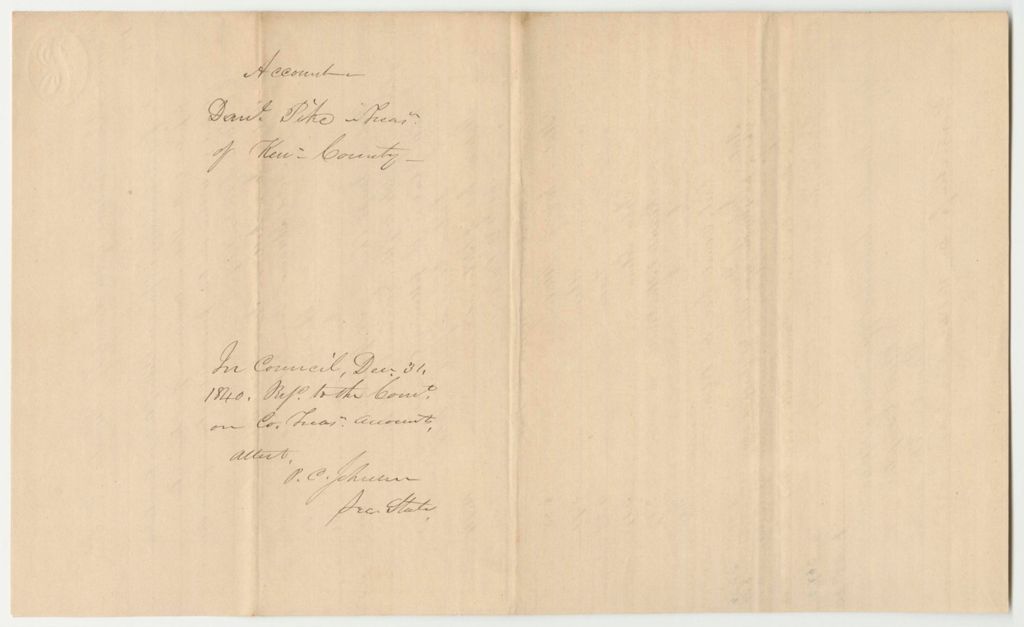 Account
Danl. Pike Treasr.
of Ken- County-
In Council, Dec. 31.
1840. Refd. to the Comte.
on Co. Treasr. Accounts,
Attest,
P. C. Johnson
Sec. State,